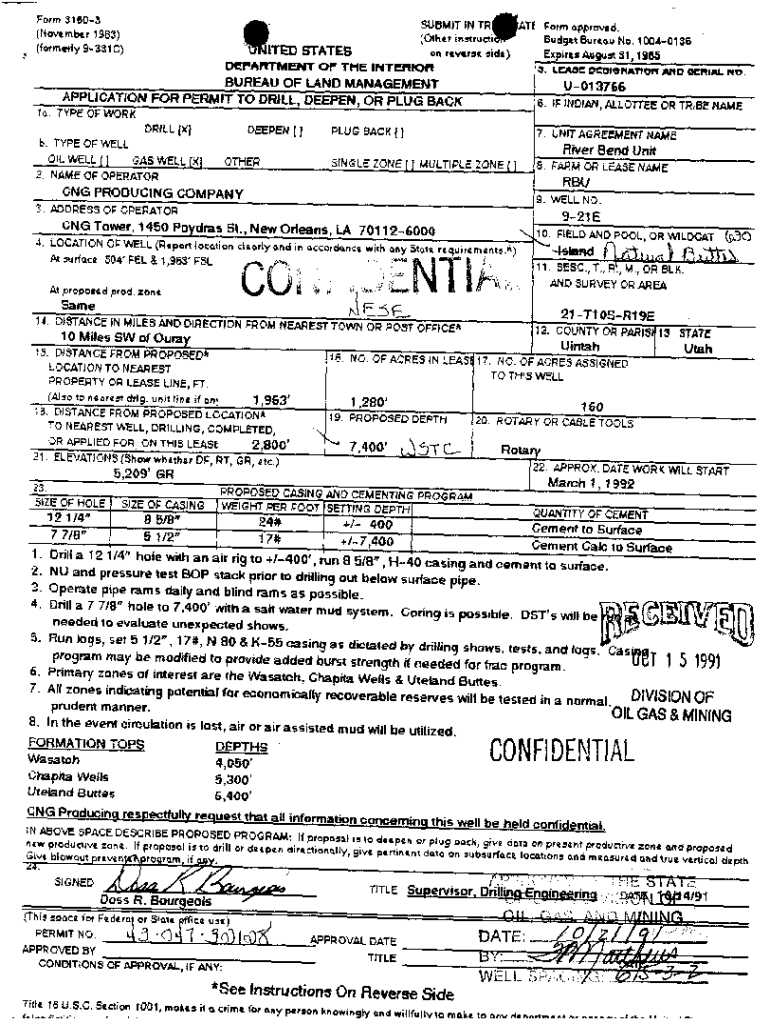 Form 3160-3
(November 1983)
(formerly 9-331C)
SUBMIT IN
(Other instruction
on reverse side)
Form approved.
Budget Bureau No. 1004-0136
Expires August 31, 1985
UNITED STATES
DEPARTMENT OF THE INTERIOR
BUREAU OF LAND MANAGEMENT
5. LEASE DESIGNATION AND SERIAL NO.
U-013766
APPLICATION FOR PERMIT TO DRILL, DEEPEN, OR PLUG BACK
6. IF INDIAN, ALLOTTEE OR TRIBE NAME
1a. TYPE OF WORK
DRILL [X] DEEPEN [ ] PLUG BACK [ ]
7. UNIT AGREEMENT NAME
River Bend Unit
b. TYPE OF WELL
OIL WELL [ ] GAS WELL [X] OTHER SINGLE ZONE [ ] MULTIPLE ZONE [ ]
8. FARM OR LEASE NAME
RBU
2. NAME OF OPERATOR
CNG PRODUCING COMPANY
9. WELL NO.
9-21E
3. ADDRESS OF OPERATOR
CNG Tower, 1450 Poydras St., New Orleans, LA 70112-6000
10. FIELD AND POOL, OR WILDCAT 630
Island Natural Buttes
4. LOCATION OF WELL (Report location clearly and in accordance with any State requirements.*)
At surface 504' FEL & 1,963' FSL
CONFIDENTIAL
11. SESC., T., R., M., OR BLK.
AND SURVEY OR AREA
At proposed prod. zone
Same
NESE
21-T10S-R19E
14. DISTANCE IN MILES AND DIRECTION FROM NEAREST TOWN OR POST OFFICE*
10 Miles SW of Ouray
12. COUNTY OR PARISH 13 STATE
Uintah Utah
15. DISTANCE FROM PROPOSED*
LOCATION TO NEAREST
PROPERTY OR LEASE LINE, FT.
(Also to nearest drlg. unit line if any 1,963'
16. NO. OF ACRES IN LEASE
1,280'
17. NO. OF ACRES ASSIGNED
TO THIS WELL
160
18. DISTANCE FROM PROPOSED LOCATION*
TO NEAREST WELL, DRILLING, COMPLETED,
OR APPLIED FOR ON THIS LEASE 2,800'
19. PROPOSED DEPTH
7,400' WSTC
20. ROTARY OR CABLE TOOLS
Rotary
21. ELEVATIONS (Show whether DF, RT, GR, etc.)
5,209' GR
22. APPROX. DATE WORK WILL START
March 1, 1992
23. PROPOSED CASING AND CEMENTING PROGRAM
SIZE OF HOLE SIZE OF CASING WEIGHT PER FOOT SETTING DEPTH QUANTITY OF CEMENT
12 1/4" 8 5/8" 24# +/- 400 Cement to Surface
7 7/8" 5 1/2" 17# +/-7,400 Cement Calc to Surface
1. Drill a 12 1/4" hole with an air rig to +/-400', run 8 5/8", H-40 casing and cement to surface.
2. NU and pressure test BOP stack prior to drilling out below surface pipe.
3. Operate pipe rams daily and blind rams as possible.
4. Drill a 7 7/8" hole to 7,400' with a salt water mud system. Coring is possible. DST's will be
needed to evaluate unexpected shows.
5. Run logs, set 5 1/2", 17#, N 80 & K-55 casing as dictated by drilling shows, tests, and logs. Casing
program may be modified to provide added burst strength if needed for frac program.
6. Primary zones of interest are the Wasatch, Chapita Wells & Uteland Buttes.
7. All zones indicating potential for economically recoverable reserves will be tested in a normal,
prudent manner.
8. In the event circulation is lost, air or air assisted mud will be utilized.
RECEIVED
OCT 15 1991
DIVISION OF
OIL GAS & MINING
FORMATION TOPS DEPTHS
Wasatch 4,050'
Chapita Wells 5,300'
Uteland Buttes 6,400'
CONFIDENTIAL
CNG Producing respectfully request that all information concerning this well be held confidential.
IN ABOVE SPACE DESCRIBE PROPOSED PROGRAM: If proposal is to deepen or plug back, give data on present productive zone and proposed
new productive zone. If proposal is to drill or deepen directionally, give pertinent data on subsurface locations and measured and true vertical depth
Give blowout preventer program, if any.
24.
SIGNED Doss R Bourgeois TITLE Supervisor, Drilling Engineering DATE 10/14/91
Doss R. Bourgeois
THE STATE
OIL, GAS, AND MINING
(This space for Federal or State office use)
PERMIT NO. APPROVAL DATE
APPROVED BY TITLE
CONDITIONS OF APPROVAL, IF ANY:
DATE: 10/21/91
BY:
WELL SPACING: 615-3-2
*See Instructions On Reverse Side
Title 18 U.S.C. Section 1001, makes it a crime for any person knowingly and willfully to make to any department